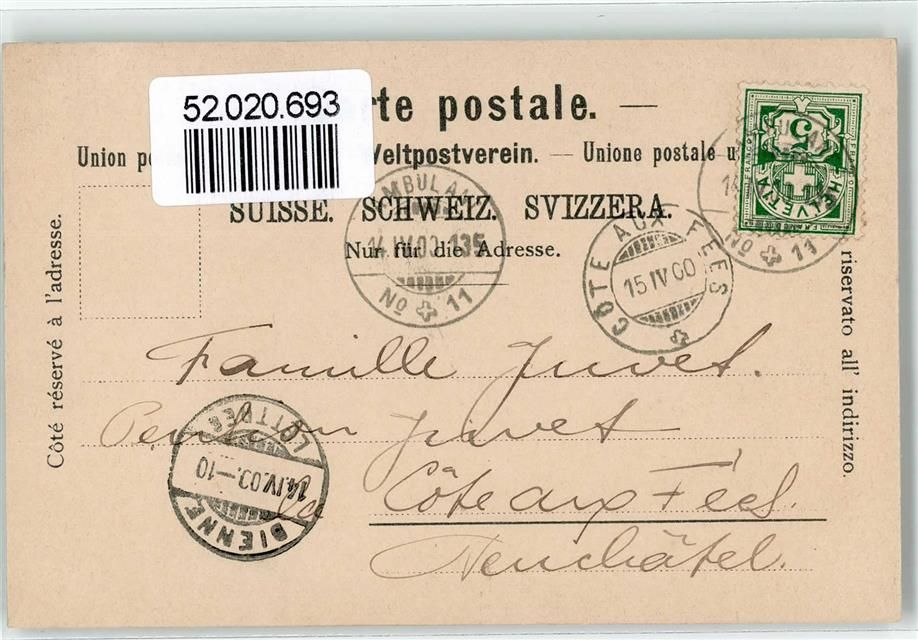 52.020.693
rte postale. —
Union po Weltpostverein. — Unione postale u
SUISSE. SCHWEIZ. SVIZZERA.
Nur für die Adresse.
Côté réservé à l'adresse.
riservato all' indirizzo.
AMBULANT
14.IV.00.135
No 11
COTE AUX FEES
15 IV 00
No 11
HELVETIA
5
Famille Juvet.
Pension Juvet
la Côte aux Fées.
Neuchâtel.
BIENNE
14.IV.00.-10
LETTRES